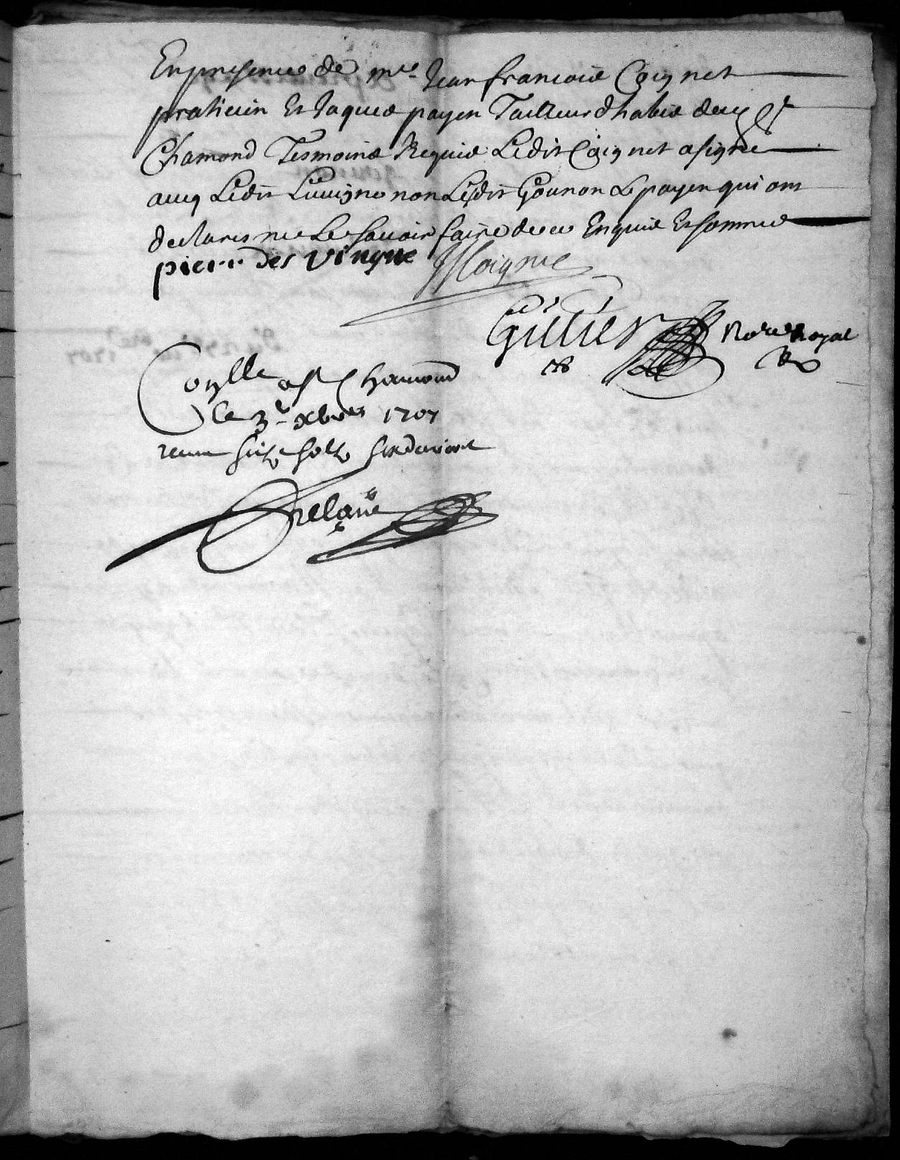 En presence de mre Jean francois Coignet
praticien Et Jaques payen Tailleur dhabis de St
Chamond Tesmoins Requis Ledit Coignet a signé
avec Ledit non Ledit Gounon Le payen qui ont
declarés ne Le savoir faire de ce Enquis Et sommés
pierre des vingne Coignet
Gütier Nore Royal
Conlle a St Chamond
le 3e xbre 1707
receu sols